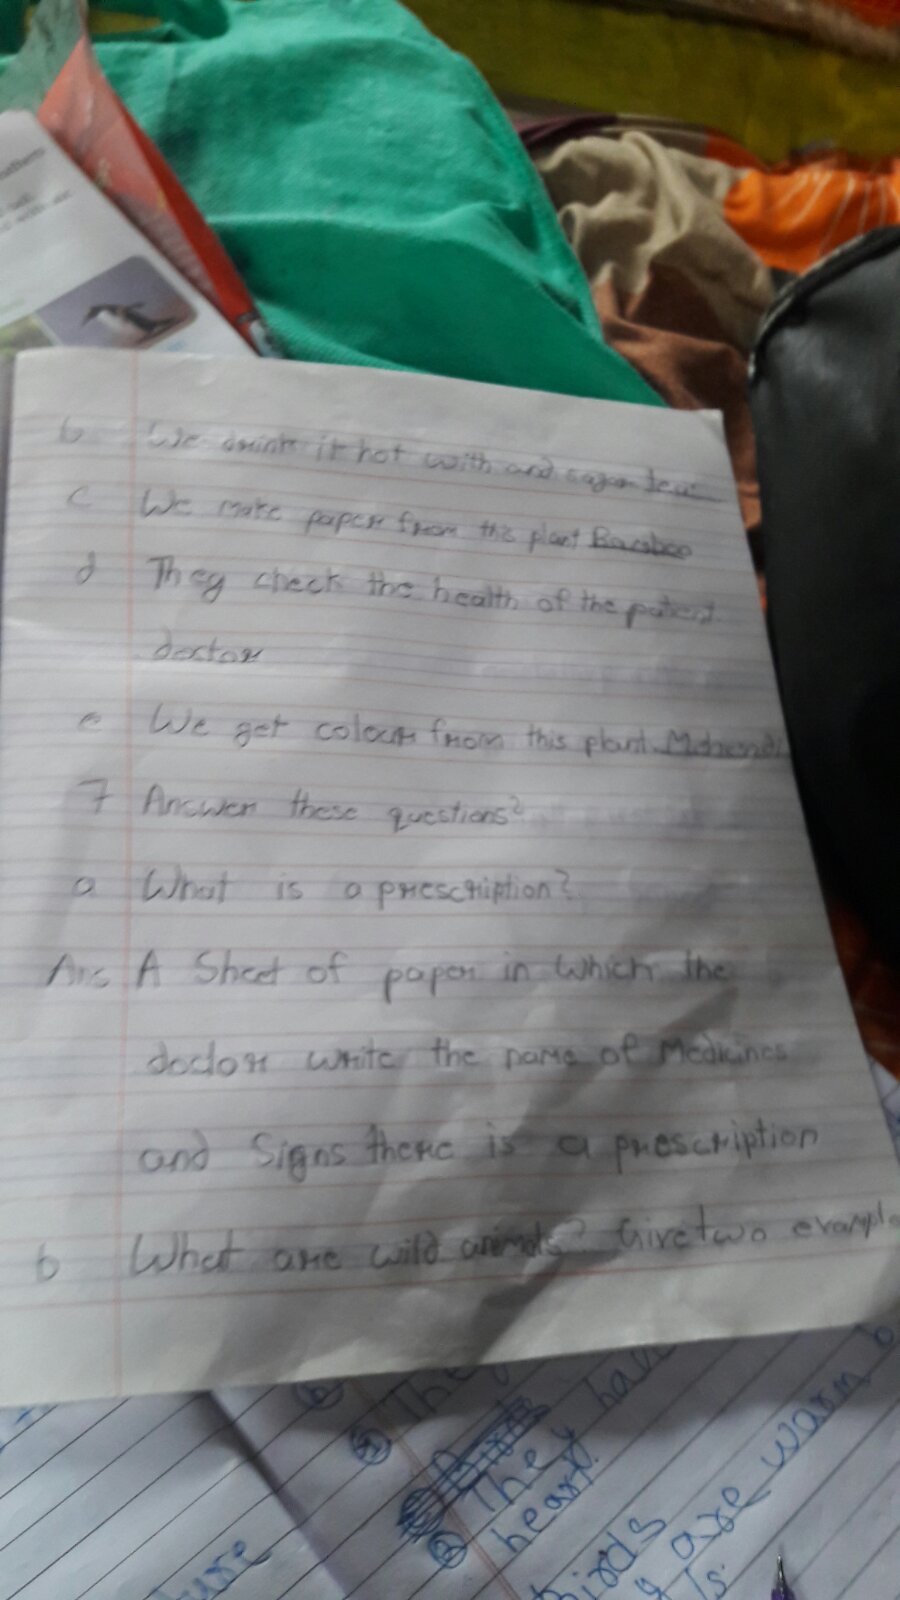 b We drink it hot with and sugar tea
c We make paper from this plant Bamboo
d They check the health of the patient
doctor
e We get colour from this plant
7 Answer these questions?
a What is a prescription?
Ans A Sheet of paper in which the
doctor write the name of Medicines
and Signs there is a prescription
b What are wild animals? Give two example
They have
heart.
Birds
are warm b